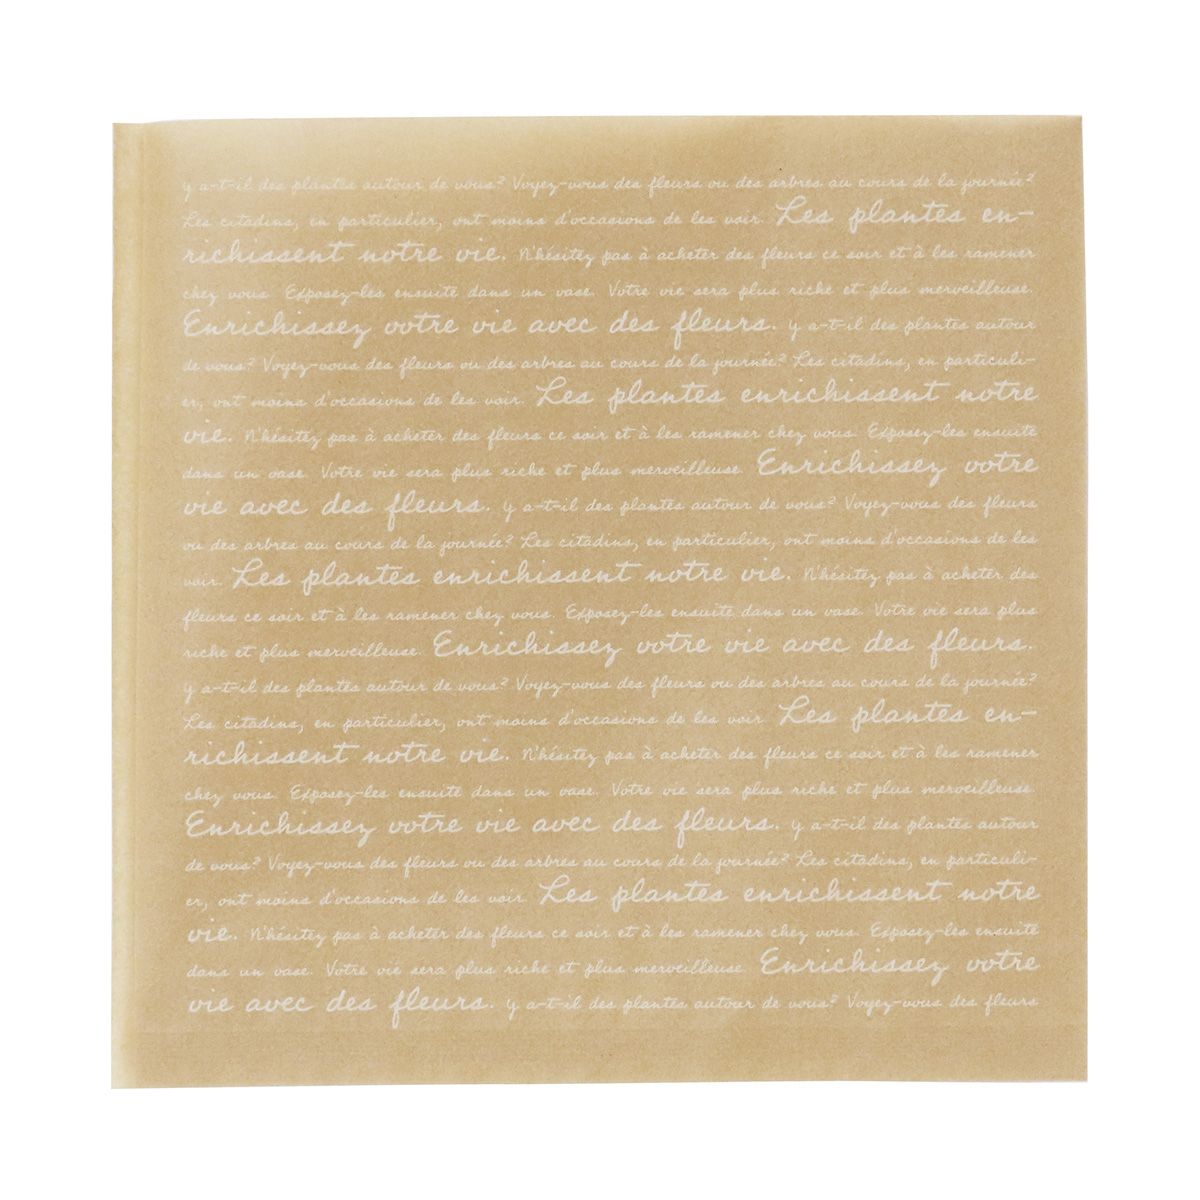 y a-t-il des plantes autour de vous? Voyez-vous des fleurs ou des arbres au cours de la journée?
Les citadins, en particulier, ont moins d'occasions de les voir. Les plantes en-
richissent notre vie. N'hésitez pas à acheter des fleurs ce soir et à les ramener
chez vous. Exposez-les ensuite dans un vase. Votre vie sera plus riche et plus merveilleuse.
Enrichissez votre vie avec des fleurs. y a-t-il des plantes autour
de vous? Voyez-vous des fleurs ou des arbres au cours de la journée? Les citadins, en particuli-
er, ont moins d'occasions de les voir. Les plantes enrichissent notre
vie. N'hésitez pas à acheter des fleurs ce soir et à les ramener chez vous. Exposez-les ensuite
dans un vase. Votre vie sera plus riche et plus merveilleuse. Enrichissez votre
vie avec des fleurs. y a-t-il des plantes autour de vous? Voyez-vous des fleurs
ou des arbres au cours de la journée? Les citadins, en particulier, ont moins d'occasions de les
voir. Les plantes enrichissent notre vie. N'hésitez pas à acheter des
fleurs ce soir et à les ramener chez vous. Exposez-les ensuite dans un vase. Votre vie sera plus
riche et plus merveilleuse. Enrichissez votre vie avec des fleurs.
y a-t-il des plantes autour de vous? Voyez-vous des fleurs ou des arbres au cours de la journée?
Les citadins, en particulier, ont moins d'occasions de les voir. Les plantes en-
richissent notre vie. N'hésitez pas à acheter des fleurs ce soir et à les ramener
chez vous. Exposez-les ensuite dans un vase. Votre vie sera plus riche et plus merveilleuse.
Enrichissez votre vie avec des fleurs. y a-t-il des plantes autour
de vous? Voyez-vous des fleurs ou des arbres au cours de la journée? Les citadins, en particuli-
er, ont moins d'occasions de les voir. Les plantes enrichissent notre
vie. N'hésitez pas à acheter des fleurs ce soir et à les ramener chez vous. Exposez-les ensuite
dans un vase. Votre vie sera plus riche et plus merveilleuse. Enrichissez votre
vie avec des fleurs. y a-t-il des plantes autour de vous? Voyez-vous des fleurs